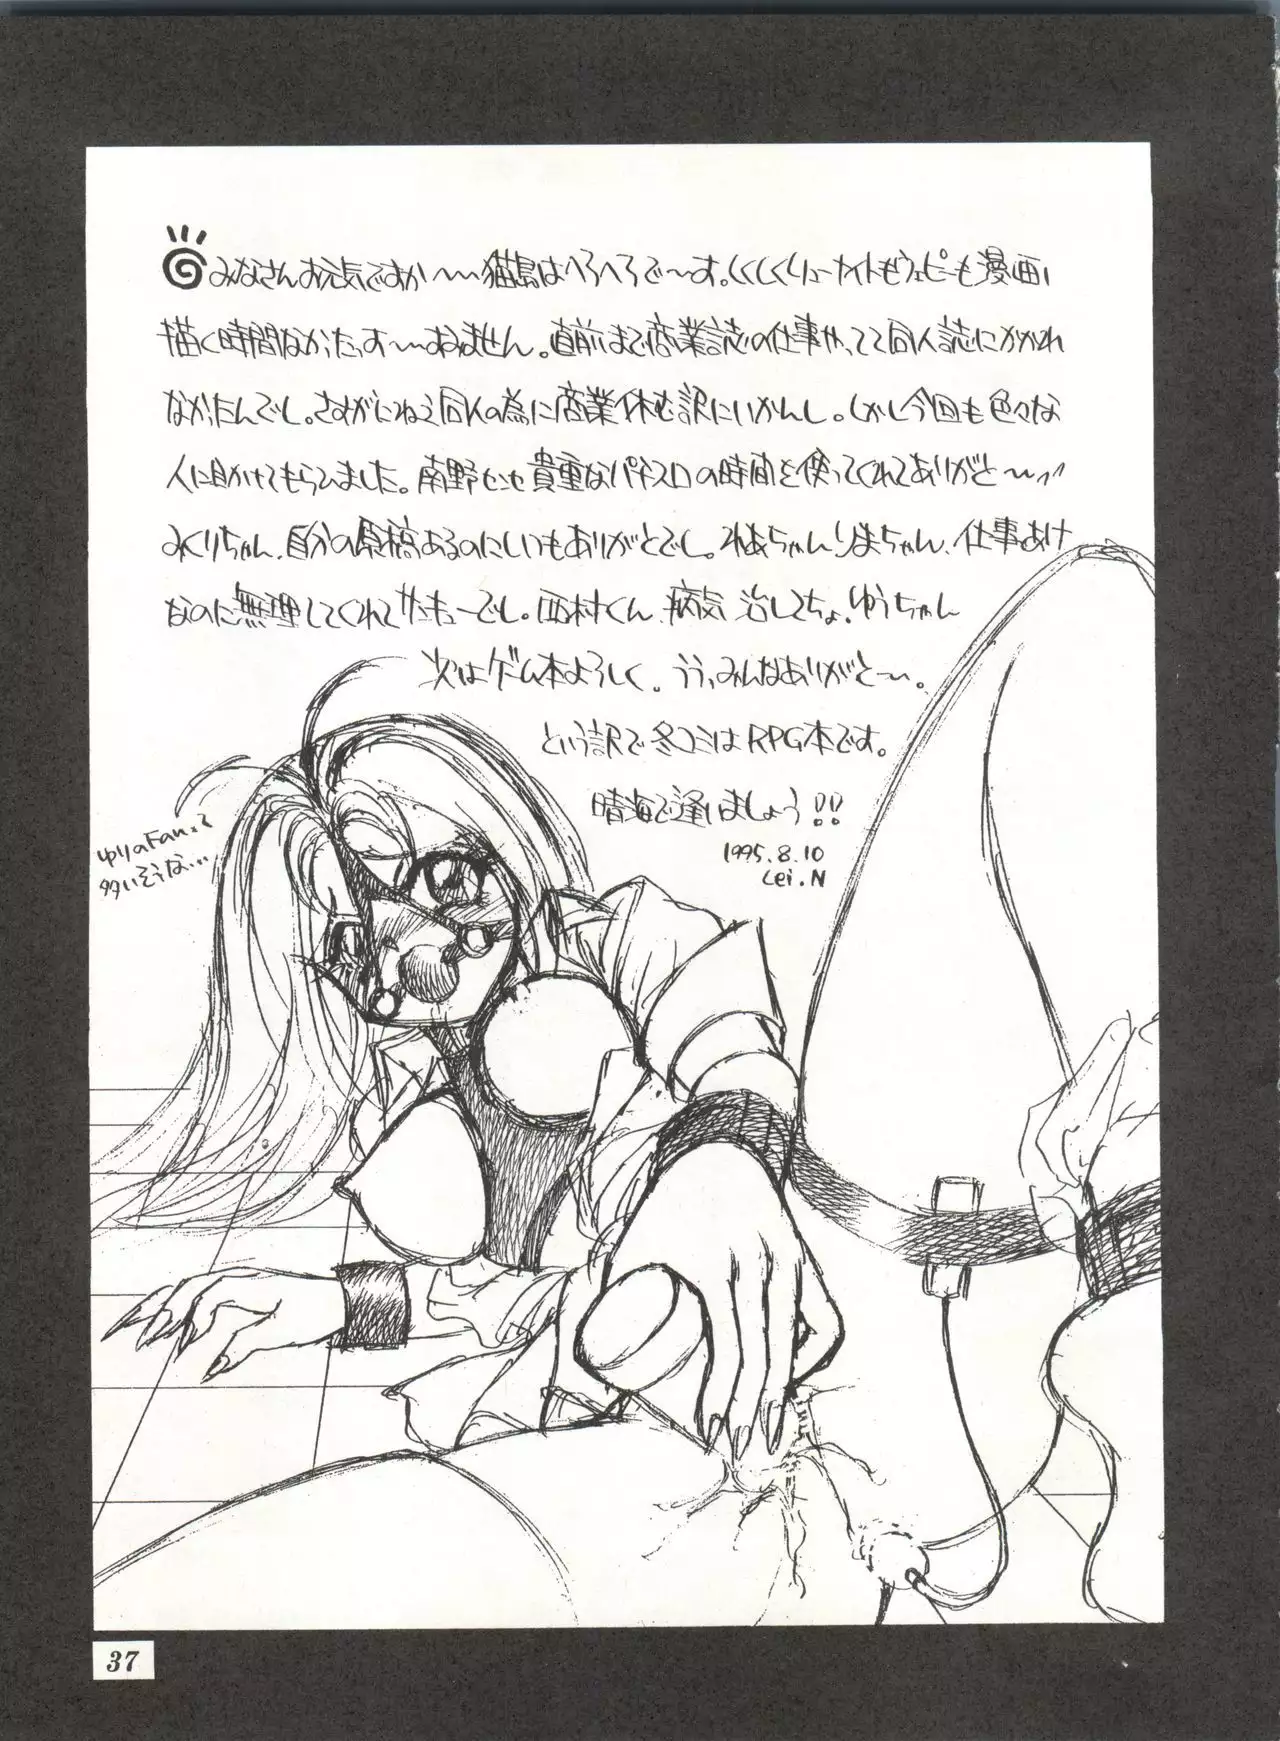 みなさんお元気ですか〜〜猫島はへろへろで〜す。しくしくリューナイトもウェピーも漫画
描く時間なかったっす〜〜すません。直前まで商業誌の仕事やってて同人誌にかかれ
なかったんでし。さすがにねえ同人の為に商業休む訳にいかんし。しかし今回も色々な
人に助けてもらいました。南野センセ貴重なパチスロの時間を使ってくれてありがと〜
みくりちゃん、自分の原稿あるのにいつもありがとでし。ちゃん、仕事あけ
なのに無理してくれてサンキューでし。西村くん、病気治してちょ。ゆうちゃん
次はゲーム本よろしく。ううっみんなありがと〜。
という訳で冬コミはRPG本です。
晴海で逢いましょう!!
1995.8.10
Lei.N
ゆりのFanって
多いそうな…
37